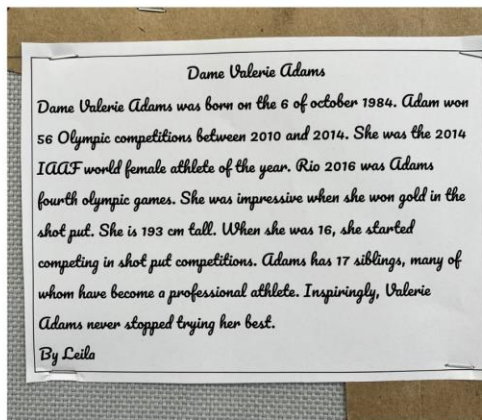 Dame Valerie Adams
Dame Valerie Adams was born on the 6 of october 1984. Adam won
56 Olympic competitions between 2010 and 2014. She was the 2014
IAAF world female athlete of the year. Rio 2016 was Adams
fourth olympic games. She was impressive when she won gold in the
shot put. She is 193 cm tall. When she was 16, she started
competing in shot put competitions. Adams has 17 siblings, many of
whom have become a professional athlete. Inspiringly, Valerie
Adams never stopped trying her best.
By Leila